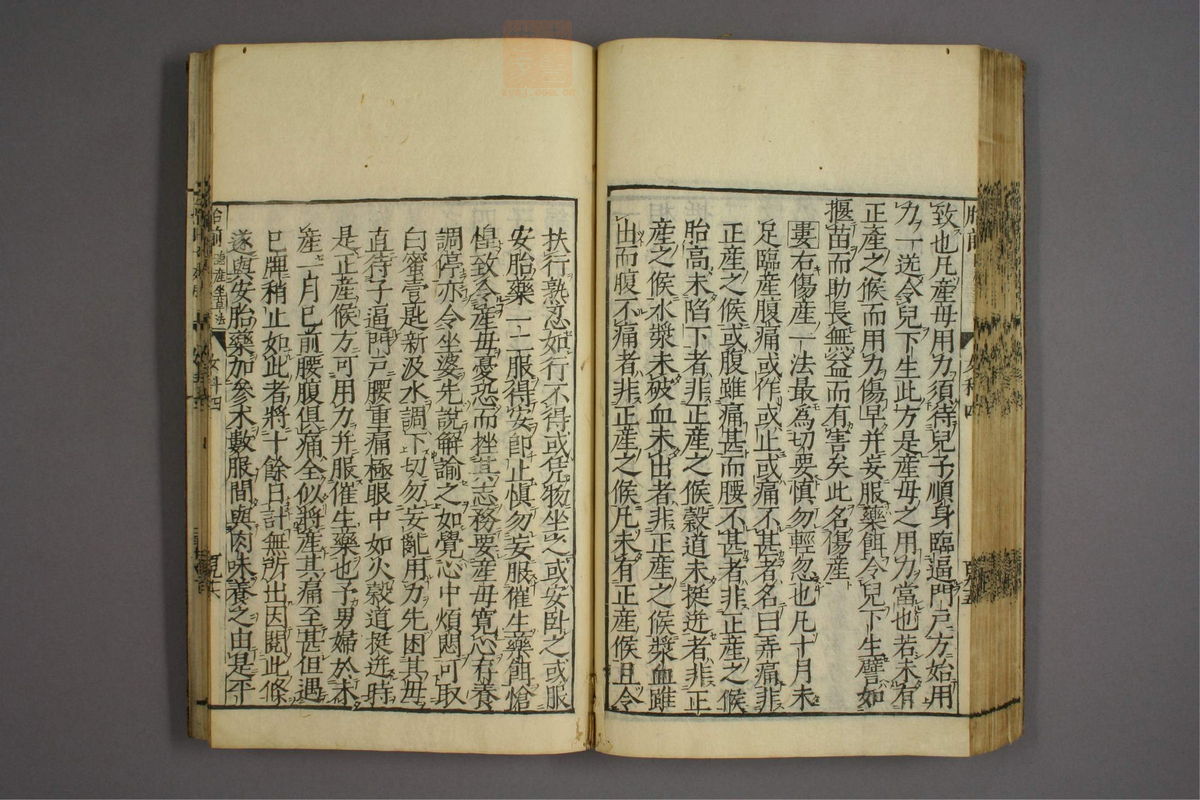 致也凡產母用力須待兒子順身臨逼門戸方始用
力一送令兒下生此方是產母之用力當也若未有
正產之候而用力傷早并妄服藥餌令兒下生譬如
揠苗而助長無益而有害矣此名傷產
婁右傷產一法最為切要慎勿輕忽也凡十月未
足臨產腹痛或作或止或痛不甚者名曰弄痛非
正產之候或腹雖痛甚而腰不甚者非正產之候
胎高未陷下者非正產之候穀道未挺迸者非正
產之候水漿未破血未出者非正產之候漿血雖
出而腹不痛者非正產之候凡未有正產候且令
扶行熟忍如行不得或凭物坐之或安臥之或服
安胎藥一二服得安即止慎勿妄服催生藥餌愴
惶致令產母憂恐而挫其志務要產母寬心存養
調停亦令坐婆先說解諭之如覺心中煩悶可取
白蜜壹匙新汲水調下切勿妄亂用力先困其母
直待子逼門戸腰重痛極眼中如火穀道挺迸時
是正產候方可用力并服催生藥也予男婦於未
產一月已前腰腹俱痛全似將產其痛至甚但遇
巳牌稍止如此者將十餘日計無所出因閱此條
遂與安胎藥加參朮數服間與肉味養之由是平
胎前
女科四